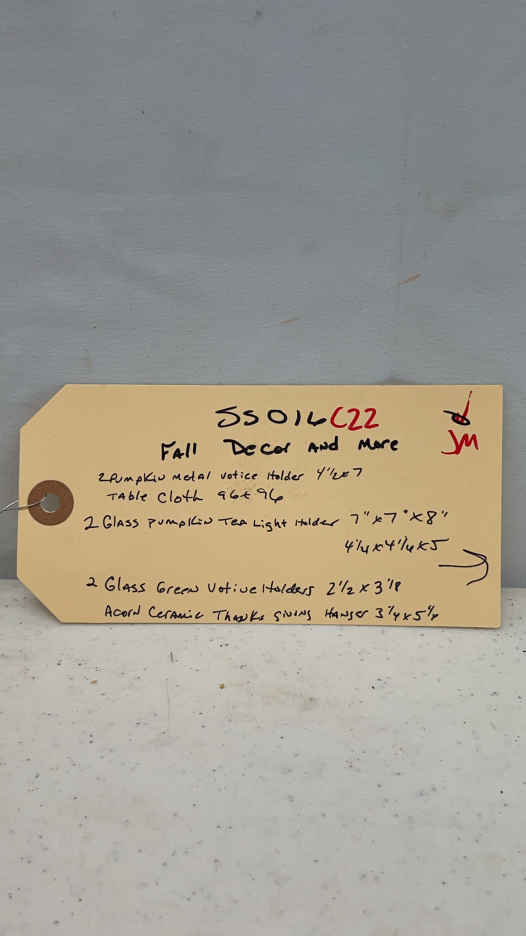 SS016 C22
JM
Fall Decor and more
2 Pumpkin metal votice Holder 4 1/2 x 7
Table Cloth 96 x 96
2 Glass Pumpkin Tea Light Holder 7" x 7" x 8"
4 1/4 x 4 1/4 x 5
2 Glass Green Votive Holders 2 1/2 x 3 1/8
Acorn Ceramic Thanks giving Hanger 3 1/4 x